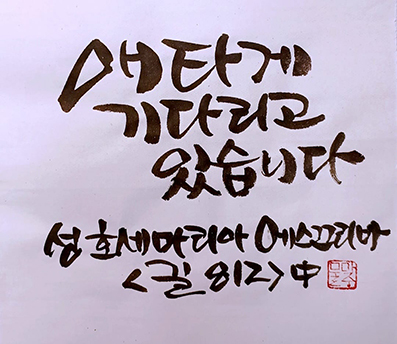 애타게
기다리고
있습니다
성 호세마리아 에스끄리바
<길 812> 中